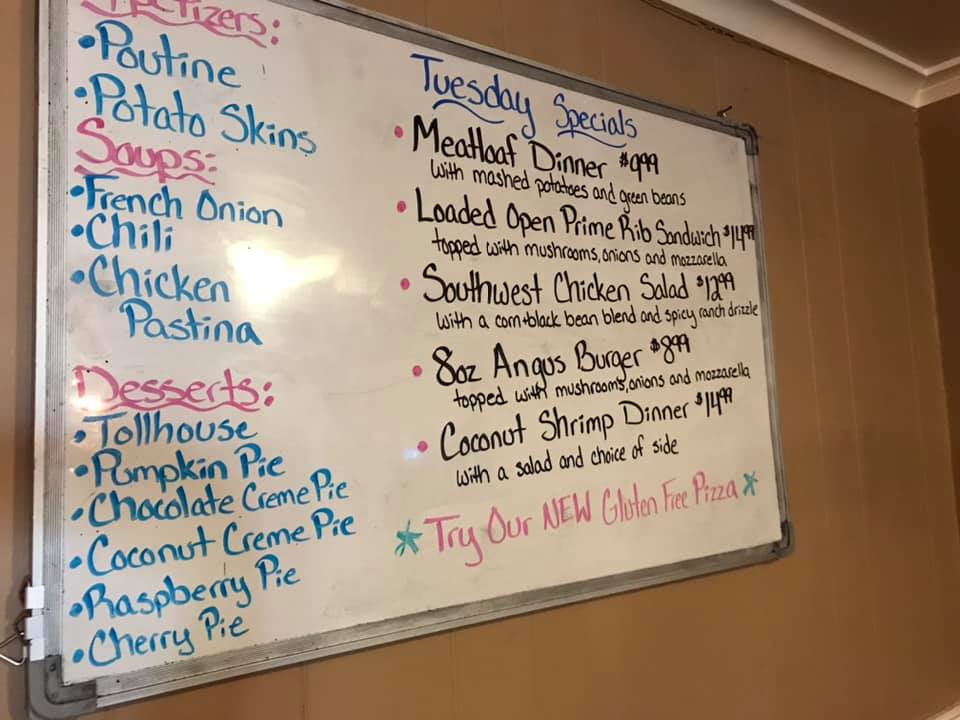 Appetizers:
• Poutine
• Potato Skins
Soups:
• French Onion
• Chili
• Chicken
Pastina
Desserts:
• Tollhouse
• Pumpkin Pie
• Chocolate Creme Pie
• Coconut Creme Pie
• Raspberry Pie
• Cherry Pie
Tuesday Specials
• Meatloaf Dinner $9.99
with mashed potatoes and green beans
• Loaded Open Prime Rib Sandwich $14.99
topped with mushrooms, onions and mozzarella
• Southwest Chicken Salad $12.99
with a corn+black bean blend and spicy ranch drizzle
• 8oz Angus Burger $8.99
topped with mushrooms, onions and mozzarella
• Coconut Shrimp Dinner $14.99
with a salad and choice of side
* Try Our NEW Gluten Free Pizza *